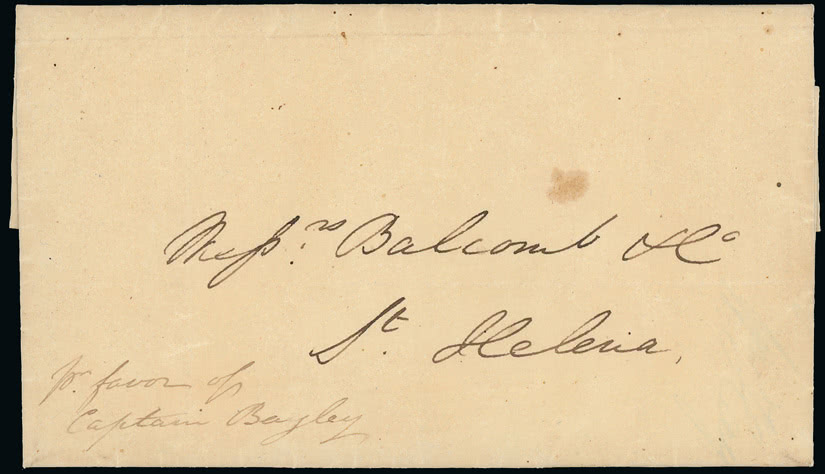 Messrs. Balcomb & Co
St. Helena,
pr. favor of
Captain Bagley